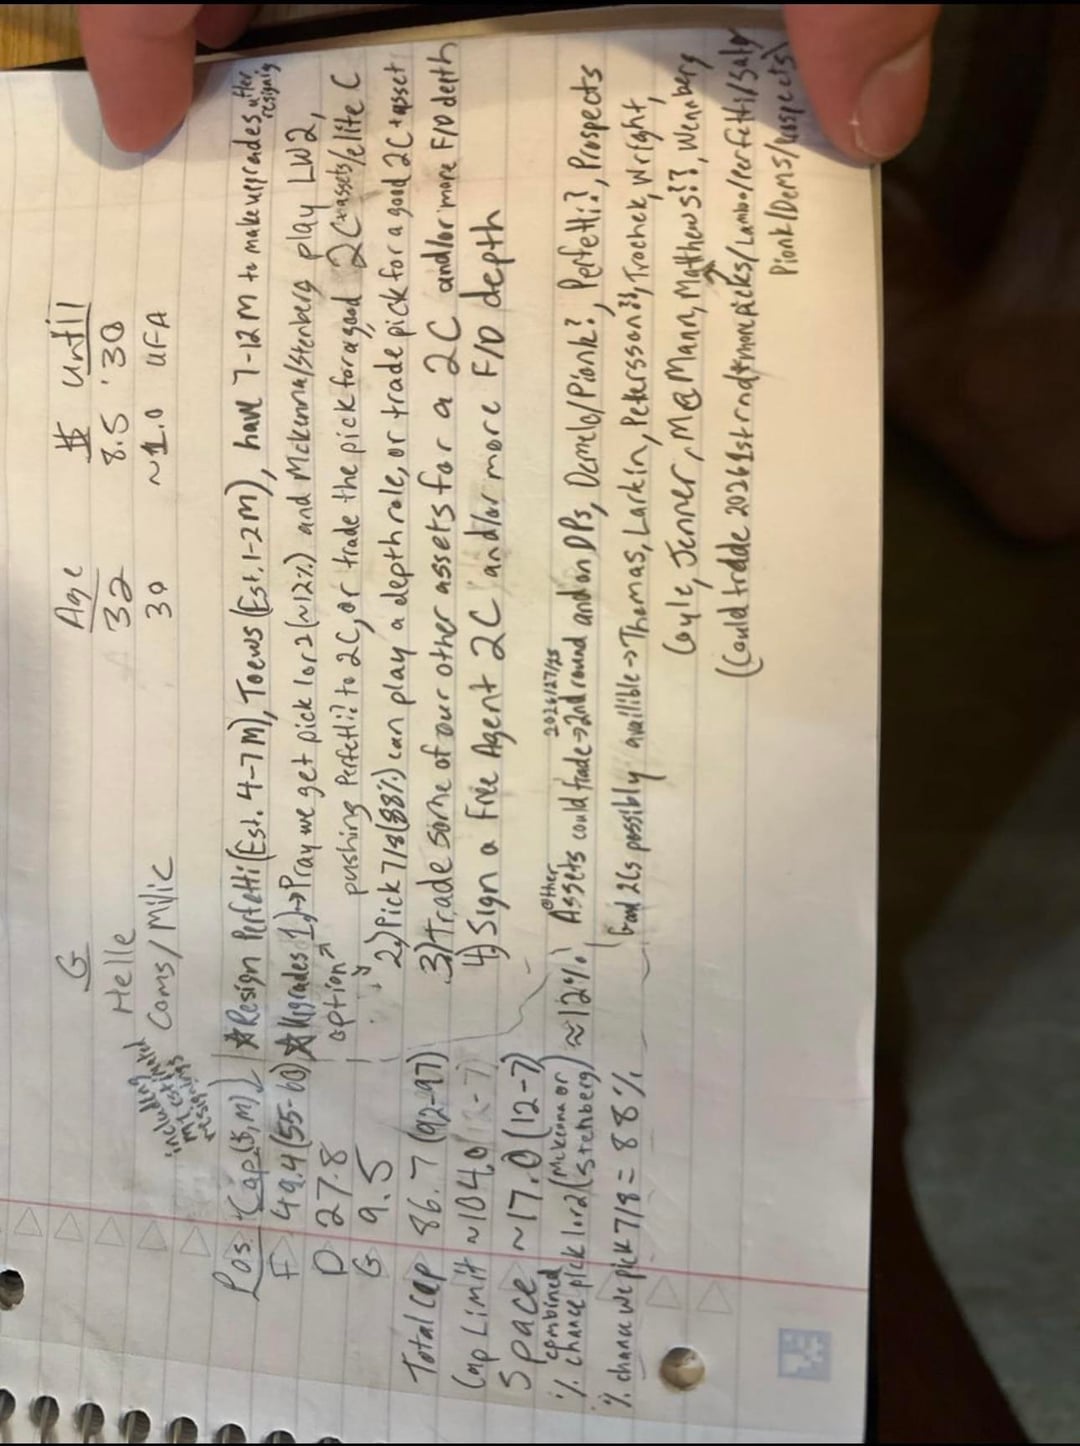 G Age $ Until
Helle 32 8.5 '30
Coms/Milic 30 ~1.0 UFA
including
estimated
resignings
Pos Cap($,M)
F 49.4 (55-60)
D 27.8
G 9.5
Total Cap 86.7 (92-97)
Cap Limit ~104.0 (12-7)
Space ~17.0 (12-7)
combined
% chance pick 1 or 2 (McKenna or Stenberg) ≈12%
% chance we pick 7/8 = 88%
☆Resign Perfetti (Est. 4-7M), Toews (Est. 1-2M), have 7-12M to make upgrades after resignig
☆Upgrades 1)→Pray we get pick 1 or 2 (~12%) and Mckenna/Stenberg play LW2,
option pushing Perfetti? to 2C, or trade the pick for a good 2C+assets/elite C
2) Pick 7/8 (88%) can play a depth role, or trade pick for a good 2C+asset
3) Trade some of our other assets for a 2C and/or more F/D depth
4) Sign a Free Agent 2C and/or more F/D depth
other 2026/27/28
Assets could trade→2nd round and on DPs, Demelo/Pionk?, Perfetti?, Prospects
Good 2Cs possibly availible→Thomas, Larkin, Petersson??, Trochek, Wright,
Coyle, Jenner, McMann, Matthews??, Wennberg
(Could trade 2026 1st rnd+more picks/Lambo/Perfetti/Salo/
Pionk/Dems/prospects)